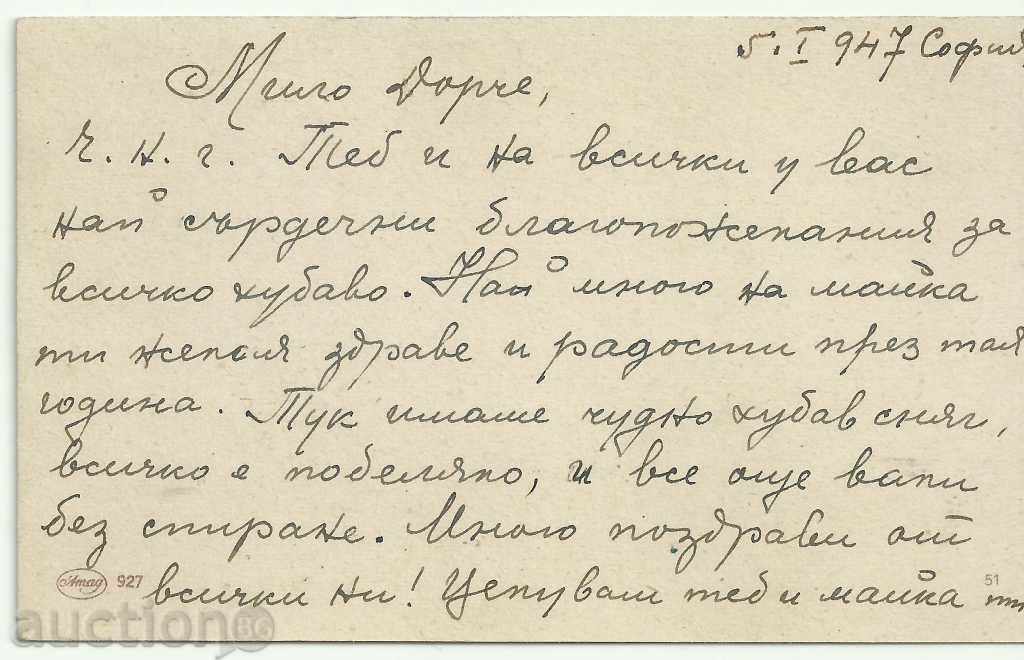 5.I 947 София
Мило Дорче,
Ч. н. г. Теб и на всички у вас
най сърдечни благопожелания за
всичко хубаво. Най много на майка
ти желая здраве и радости през тая
година. Тук имаше чудно хубав сняг,
всичко е побеляло, и все още вали
без спиране. Много поздрави от
всички ни! Целувам теб и майка ти
Amag 927
51
auction BG